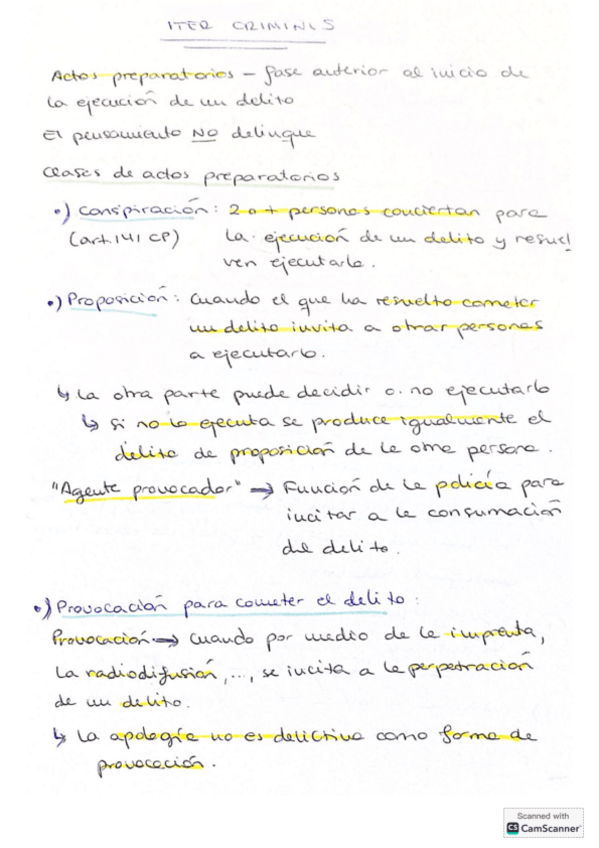 ITER CRIMINIS
Actos preparatorios – fase anterior al inicio de
la ejecución de un delito
El pensamiento NO delinque
Clases de actos preparatorios
•) Conspiración: 2 o + personas conciertan para
(art. 141 CP) la ejecución de un delito y resuel
ven ejecutarlo.
•) Proposición: Cuando el que ha resuelto cometer
un delito invita a otras personas
a ejecutarlo.
↳ La otra parte puede decidir o no ejecutarlo
↳ si no lo ejecuta se produce igualmente el
delito de proposición de la otra persona.
"Agente provocador" → Función de la policía para
incitar a la consumación
del delito.
•) Provocación para cometer el delito:
Provocación → Cuando por medio de la imprenta,
la radiodifusión, ..., se incita a la perpetración
de un delito.
↳ La apología no es delictiva como forma de
provocación.
Scanned with
CS CamScanner